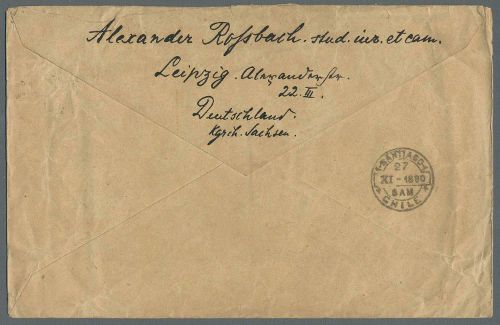 Alexander Roßbach. stud. iur. et cam.
Leipzig. Alexanderstr.
22. III.
Deutschland.
Kgrch. Sachsen.
SANTIAGO
27
XI - 1890
8 AM
CHILE